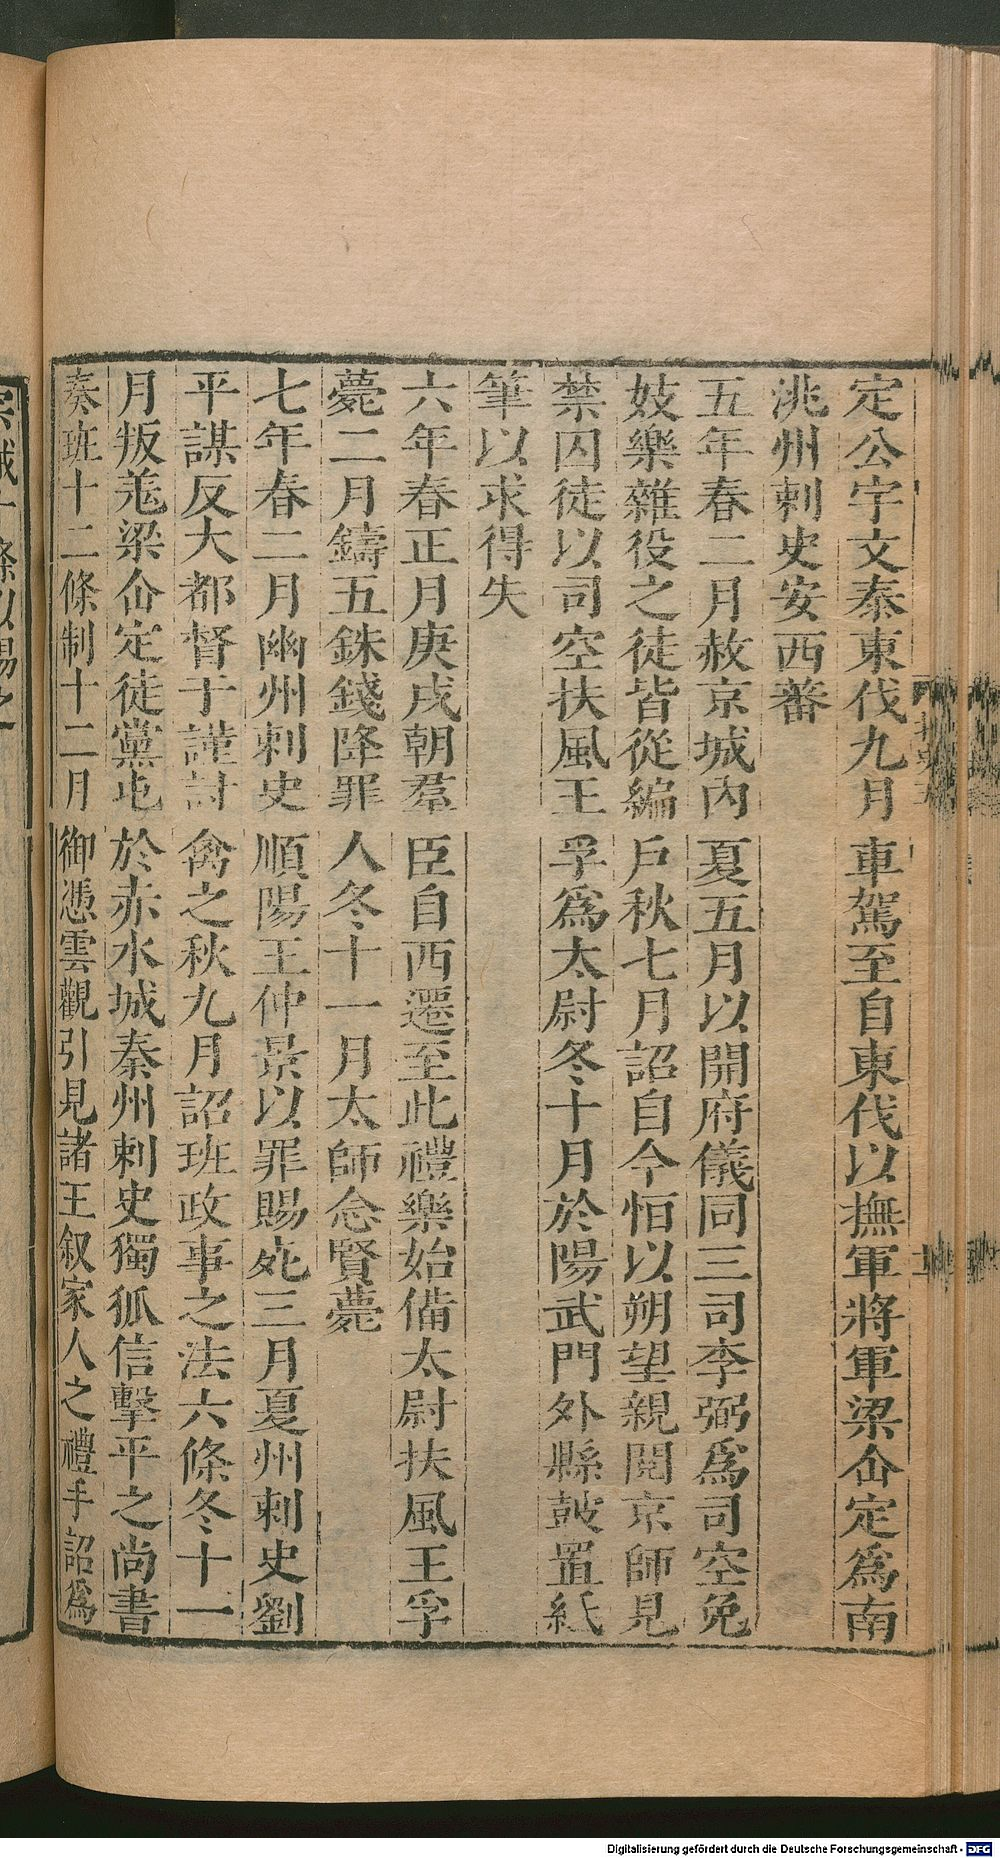 定公宇文泰東伐九月車駕至自東伐以撫軍將軍梁仚定爲南
洮州刺史安西蕃
五年春二月赦京城內夏五月以開府儀同三司李弼爲司空免
妓樂雜役之徒皆從編戶秋七月詔自今恒以朔望親閱京師見
禁囚徒以司空扶風王孚爲太尉冬十月於陽武門外縣鼓置紙
筆以求得失
六年春正月庚戌朝羣臣自西遷至此禮樂始備太尉扶風王孚
薨二月鑄五銖錢降罪人冬十一月太師念賢薨
七年春二月幽州刺史順陽王仲景以罪賜死三月夏州刺史劉
平謀反大都督于謹討禽之秋九月詔班政事之法六條冬十一
月叛羌梁仚定徒黨屯於赤水城秦州刺史獨狐信擊平之尚書
奏班十二條制十二月御憑雲觀引見諸王叙家人之禮手詔爲
Digitalisierung gefördert durch die Deutsche Forschungsgemeinschaft - DFG